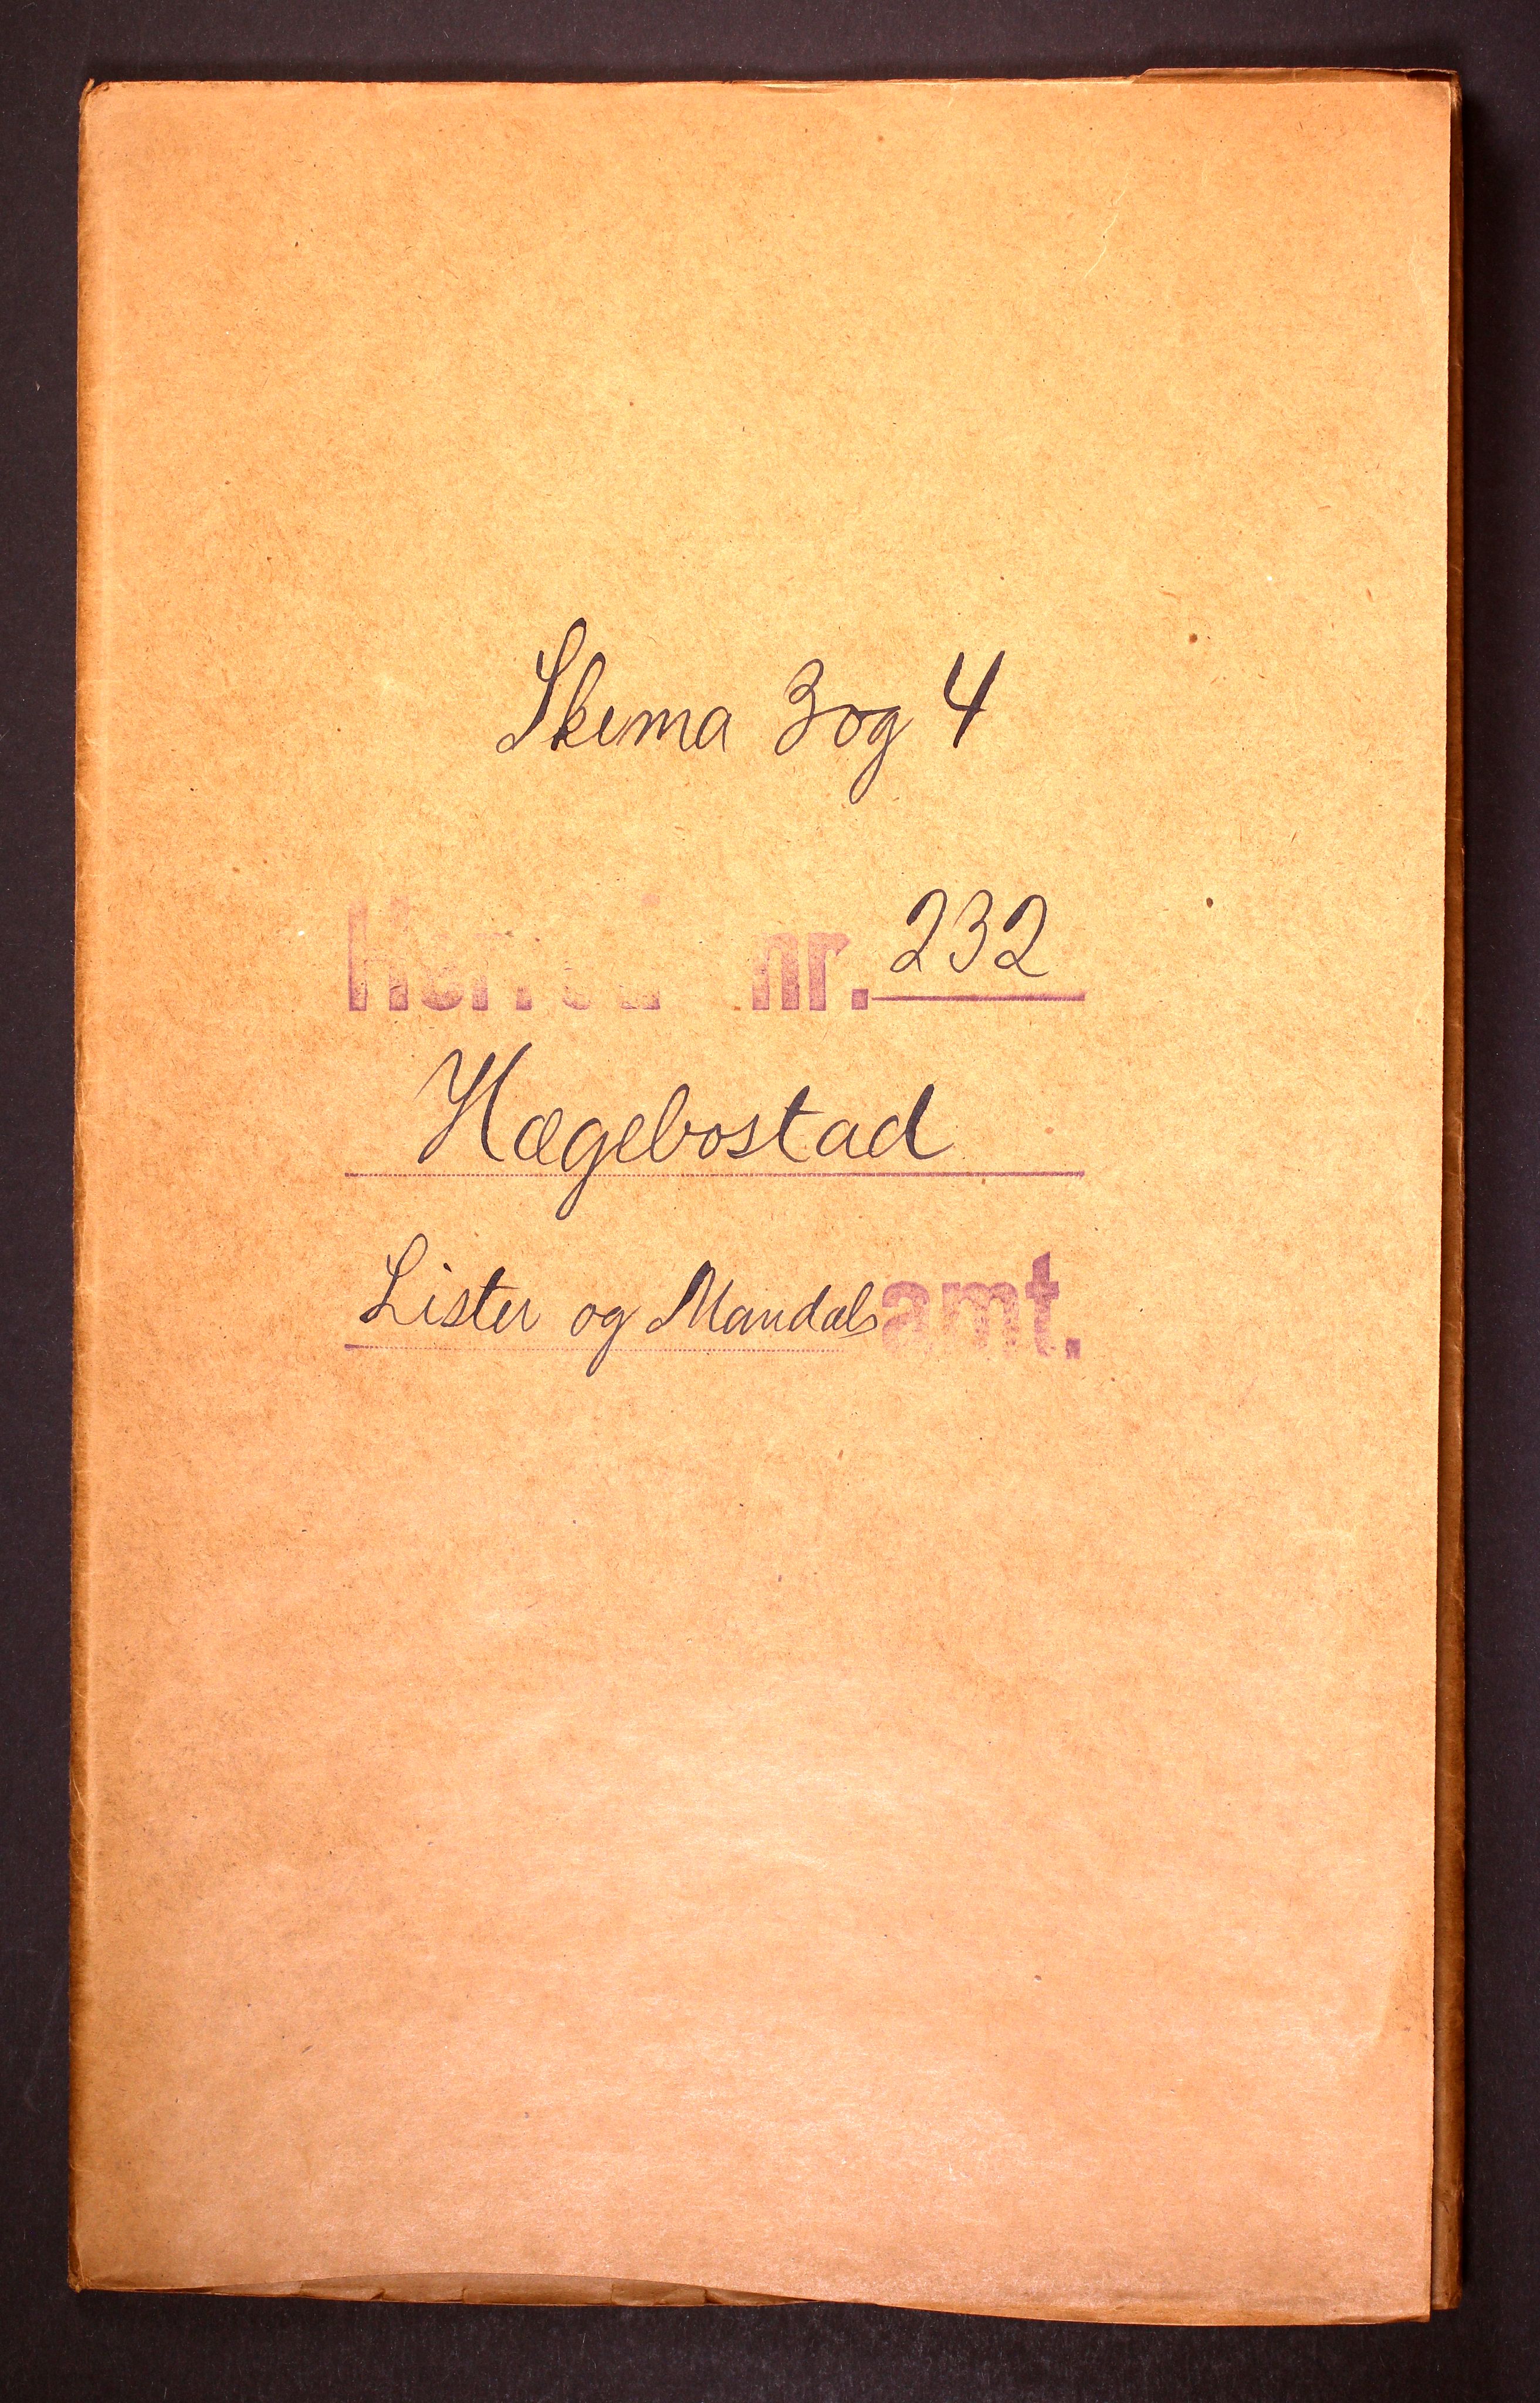 Skema 3 og 4
Herred nr. 232
Hægebostad
Lister og Mandals amt.